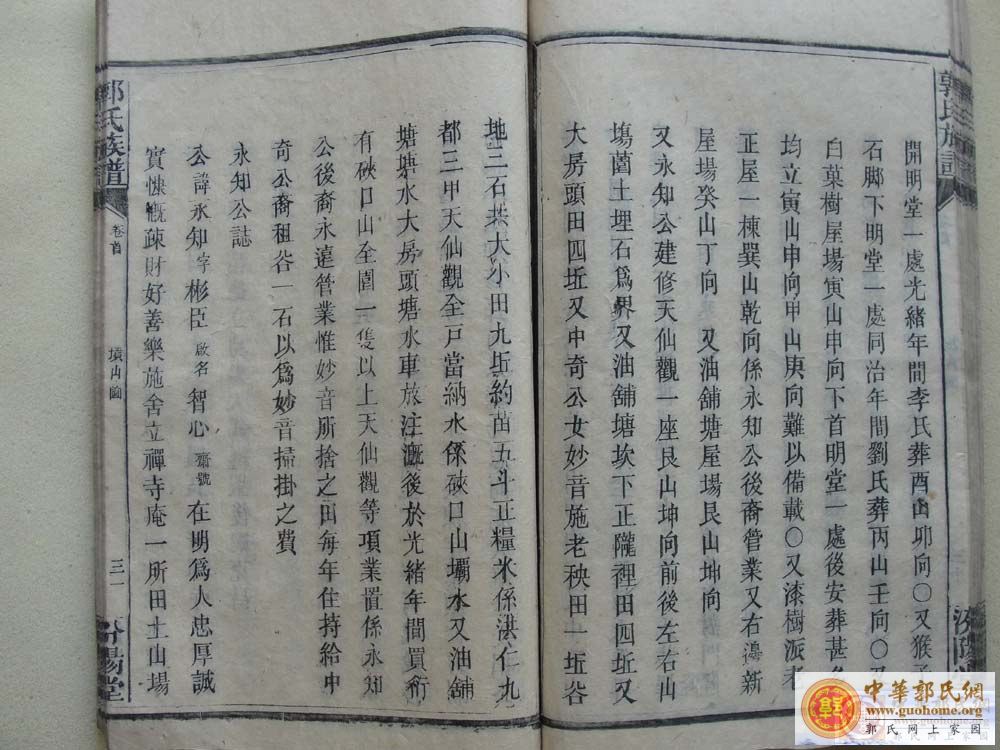 郭氏族譜
開明堂一處光緒年間李氏葬酉山卯向〇又猴子
石脚下明堂一處同治年間劉氏葬丙山壬向〇又
臼菓樹屋場寅山申向下首明堂一處後安葬甚多
均立寅山申向甲山庚向難以備載〇又漆樹派老
正屋一棟巽山乾向係永知公後裔管業又右邊新
屋場癸山丁向 又油舖塘屋場艮山坤向
又永知公建修天仙觀一座艮山坤向前後左右山
塲薗土埋石爲界又油舖塘坎下正隴裡田四坵又
大房頭田四坵又中奇公女妙音施老秧田一坵谷
汾陽堂
地二石共大小田九坵約苗五斗正糧米係淇仁九
都三甲天仙觀全戸當納水係硤口山壩水又油舖
塘塘水大房頭塘水車放注溉後於光緒年間買
有硤口山全圍一隻以上天仙觀等項業置係永知
公後裔永遠管業惟妙音所捨之田每年住持給中
奇公裔租谷一石以爲妙音掃掛之費
永知公誌
公諱永知字彬臣啟名智心齋號在明爲人忠厚誠
實慷慨疎財好善樂施舍立禪寺庵一所田土山場
郭氏族譜
卷首
三一
汾陽堂
中華郭氏網
www.guohome.org
郭氏网上家园